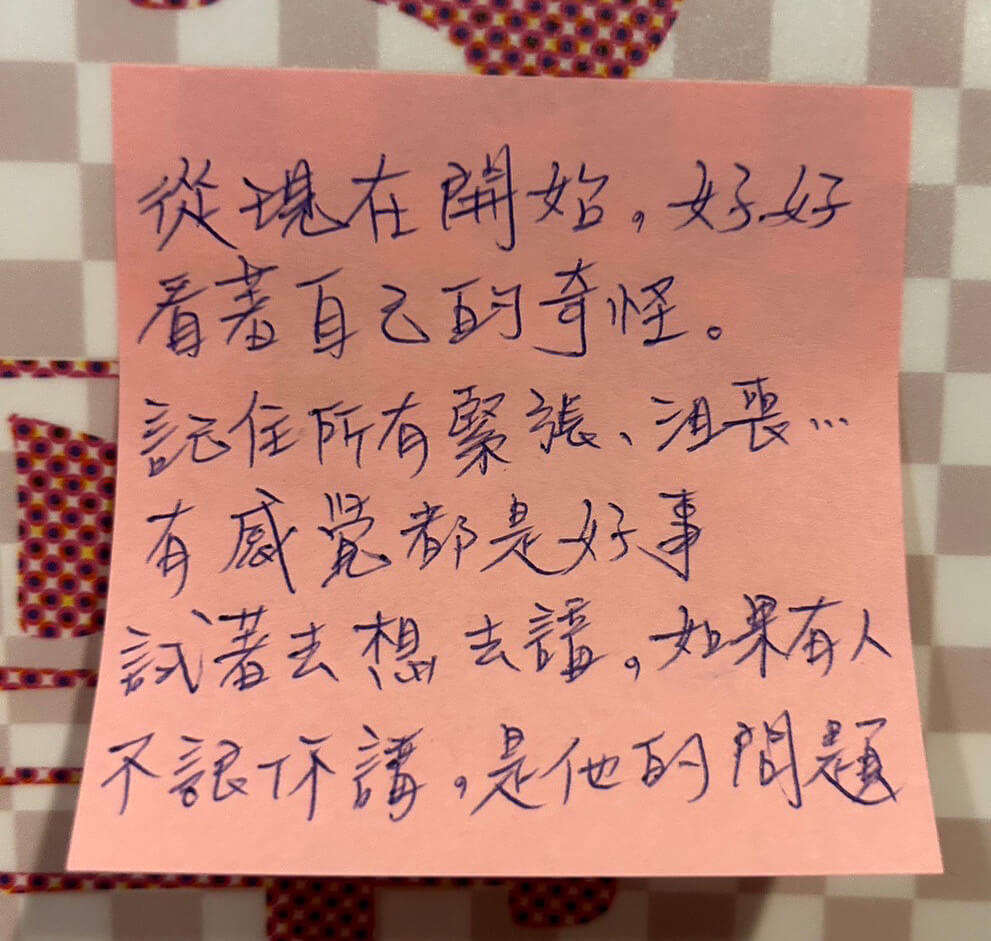 從現在開始，好好
看著自己的奇怪。
記住所有緊張、沮喪…
有感覺都是好事
試著去想去講。如果有人
不你講，是他的問題